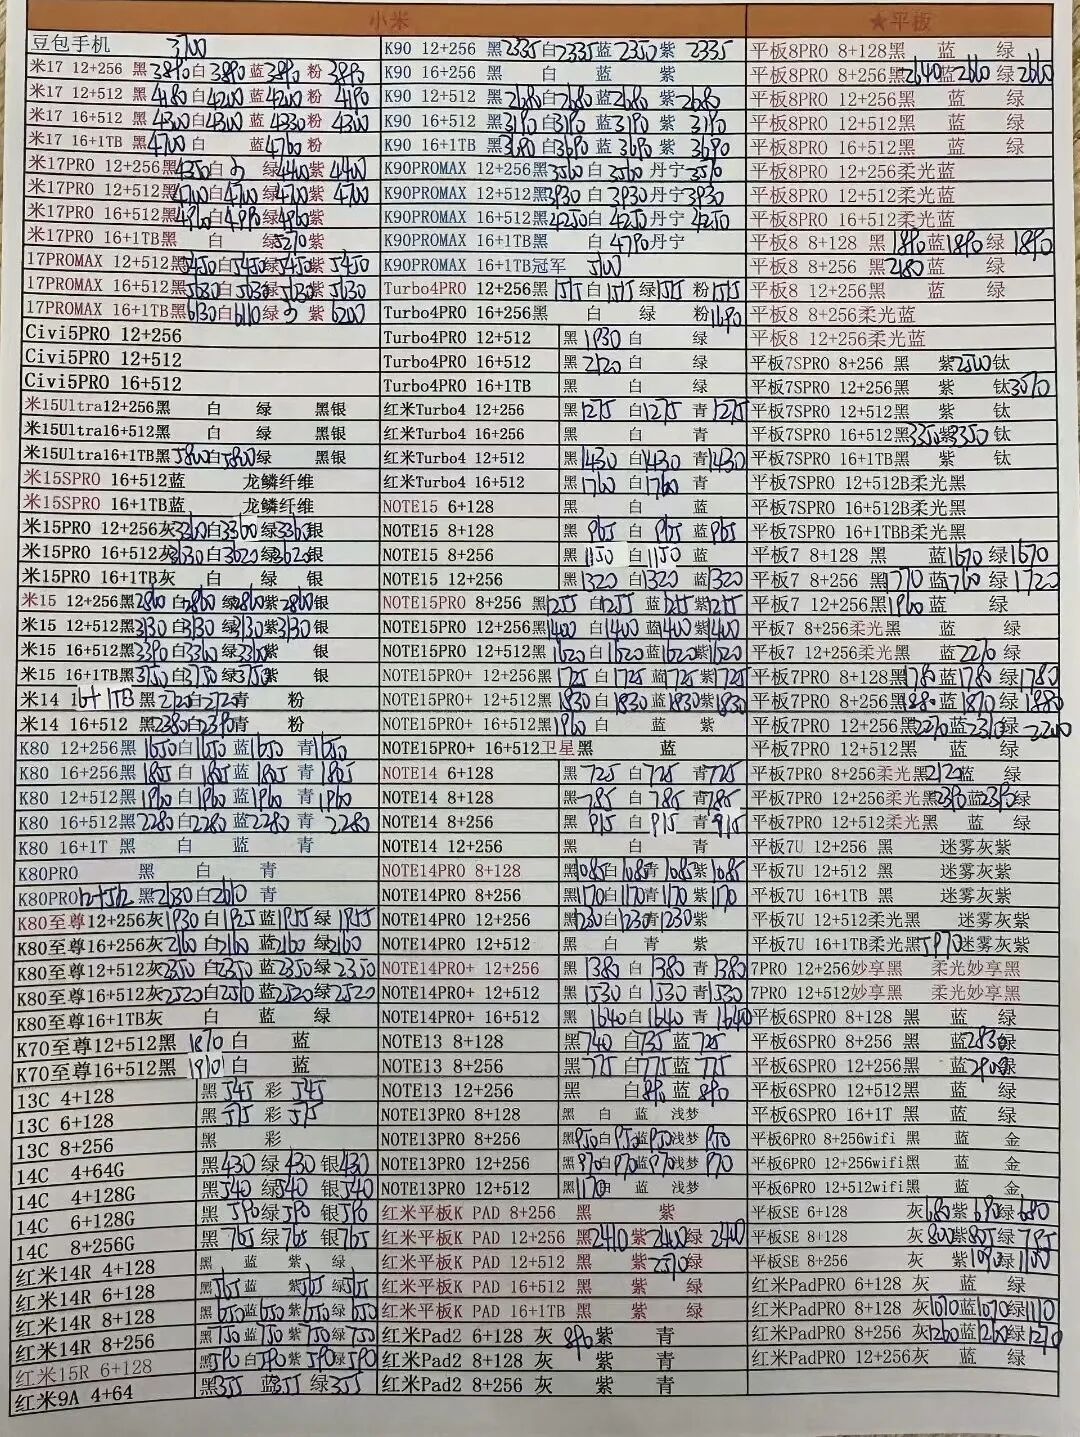 小米 ★平板
豆包手机 3700
米17 12+256 黑3890白3890蓝3890粉3890
米17 12+512 黑4180白4200蓝4200粉4190
米17 16+512 黑4300白4300蓝4330粉4300
米17 16+1TB 黑4700白 蓝4760粉
米17PRO 12+256黑4350白 绿4400紫4400
米17PRO 12+512黑4700白4700绿4700紫4700
米17PRO 16+512黑4960白4990绿4960紫
米17PRO 16+1TB黑 白 绿5270紫
17PROMAX 12+512黑5450白5450绿5450紫5450
17PROMAX 16+512黑5630白5630绿5630紫5630
17PROMAX 16+1TB黑6130白6110绿 紫6200
Civi5PRO 12+256
Civi5PRO 12+512
Civi5PRO 16+512
米15Ultra12+256黑 白 绿 黑银
米15Ultra16+512黑 白 绿 黑银
米15Ultra16+1TB黑5800白5800绿 黑银
米15SPRO 16+512蓝 龙鳞纤维
米15SPRO 16+1TB蓝 龙鳞纤维
米15PRO 12+256灰3360白3360绿3360银
米15PRO 16+512灰3630白3620绿3620银
米15PRO 16+1TB灰 白 绿 银
米15 12+256黑2860白2860绿2860紫2860银
米15 12+512黑3130白3130绿3130紫3130银
米15 16+512黑3390白3360绿3360紫 银
米15 16+1TB黑3750白3750绿3750紫 银
米14 16+1TB黑2720白2720青 粉
米14 16+512 黑2380白2390青 粉
K80 12+256黑1650白1650蓝1650青1650
K80 16+256黑1805白1805蓝1805青1805
K80 12+512黑1960白1960蓝1960青1960
K80 16+512黑2280白2280蓝2280青2280
K80 16+1T 黑 白 蓝 青
K80PRO 黑 白 青
K80PRO12+512黑2630白2610青
K80至尊12+256灰1930白1925蓝1955绿1955
K80至尊16+256灰2160白2160蓝2160绿2160
K80至尊12+512灰2350白2350蓝2350绿2350
K80至尊16+512灰2520白2510蓝2520绿2520
K80至尊16+1TB灰 白 蓝 绿
K70至尊12+512黑1870白 蓝
K70至尊16+512黑1910白 蓝
13C 4+128 黑545彩545
13C 6+128 黑575彩575
13C 8+256 黑 彩
14C 4+64G 黑430绿430银430
14C 4+128G 黑540绿540银540
14C 6+128G 黑590绿590银590
14C 8+256G 黑765绿765银765
红米14R 4+128 黑 蓝 紫 绿
红米14R 6+128 黑565蓝 紫565绿565
红米14R 8+128 黑650蓝650紫650绿650
红米14R 8+256 黑750蓝750紫750绿750
红米15R 6+128 黑590白590紫590绿590
红米9A 4+64 黑355蓝355绿355
K90 12+256 黑2335白2335蓝2350紫2335
K90 16+256 黑 白 蓝 紫
K90 12+512 黑2680白2680蓝2680紫2680
K90 16+512 黑3190白3190蓝3190紫3190
K90 16+1TB 黑3690白3690蓝3690紫3690
K90PROMAX 12+256黑3560白3560丹宁3570
K90PROMAX 12+512黑3930白3930丹宁3930
K90PROMAX 16+512黑4250白4250丹宁4250
K90PROMAX 16+1TB黑 白4790丹宁
K90PROMAX 16+1TB冠军 5100
Turbo4PRO 12+256黑1515白1515绿1515粉1515
Turbo4PRO 16+256黑 白 绿 粉1690
Turbo4PRO 12+512 黑1930白 绿
Turbo4PRO 16+512 黑2120白 绿
Turbo4PRO 16+1TB 黑 白 绿
红米Turbo4 12+256 黑1275白1275青1275
红米Turbo4 16+256 黑 白 青
红米Turbo4 12+512 黑1430白1430青1430
红米Turbo4 16+512 黑1760白1760青
NOTE15 6+128 黑 白 蓝
NOTE15 8+128 黑965白965蓝965
NOTE15 8+256 黑1150白1150蓝
NOTE15 12+256 黑1320白1320蓝1320
NOTE15PRO 8+256 黑1255白1255蓝1255紫1255
NOTE15PRO 12+256黑1400白1400蓝1400紫1400
NOTE15PRO 12+512黑1620白1620蓝1620紫1620
NOTE15PRO+ 12+256黑1725白1725蓝1725紫1725
NOTE15PRO+ 12+512黑1830白1830蓝1830紫1830
NOTE15PRO+ 16+512黑1960白 蓝 紫
NOTE15PRO+ 16+512卫星黑 蓝
NOTE14 6+128 黑725白725青725
NOTE14 8+128 黑785白785青785
NOTE14 8+256 黑915白915青915
NOTE14 12+256 黑 白 青
NOTE14PRO 8+128 黑1085白1085青1085紫1085
NOTE14PRO 8+256 黑1170白1170青1170紫1170
NOTE14PRO 12+256 黑1230白1230青1230紫
NOTE14PRO 12+512 黑 白 青 紫
NOTE14PRO+ 12+256 黑1380白1380青1380
NOTE14PRO+ 12+512 黑1530白1530青1530
NOTE14PRO+ 16+512 黑1640白1640青1640
NOTE13 8+128 黑740白735蓝725
NOTE13 8+256 黑775白775蓝775
NOTE13 12+256 黑 白890蓝890
NOTE13PRO 8+128 黑 白 蓝 浅梦
NOTE13PRO 8+256 黑950白950蓝950浅梦950
NOTE13PRO 12+256 黑970白970蓝970浅梦970
NOTE13PRO 12+512 黑1170白 蓝 浅梦
红米平板K PAD 8+256 黑 紫
红米平板K PAD 12+256 黑2410紫2400绿2400
红米平板K PAD 12+512 黑 紫2590绿
红米平板K PAD 16+512 黑 紫 绿
红米平板K PAD 16+1TB 黑 紫 绿
红米Pad2 6+128 灰890紫 青
红米Pad2 8+128 灰 紫 青
红米Pad2 8+256 灰 紫 青
平板8PRO 8+128黑 蓝 绿
平板8PRO 8+256黑2640蓝2660绿2660
平板8PRO 12+256黑 蓝 绿
平板8PRO 12+512黑 蓝 绿
平板8PRO 16+512黑 蓝 绿
平板8PRO 12+256柔光蓝
平板8PRO 12+512柔光蓝
平板8PRO 16+512柔光蓝
平板8 8+128 黑1890蓝1890绿1890
平板8 8+256 黑2180蓝 绿
平板8 12+256 黑 蓝 绿
平板8 8+256柔光蓝
平板8 12+256柔光蓝
平板7SPRO 8+256 黑 紫2500钛
平板7SPRO 12+256黑 紫 钛3570
平板7SPRO 12+512黑 紫 钛
平板7SPRO 16+512黑3350紫3350钛
平板7SPRO 16+1TB黑 紫 钛
平板7SPRO 12+512B柔光黑
平板7SPRO 16+512B柔光黑
平板7SPRO 16+1TBB柔光黑
平板7 8+128 黑 蓝1670绿1670
平板7 8+256 黑1770蓝1760绿1720
平板7 12+256黑1960蓝 绿
平板7 8+256柔光黑 蓝 绿
平板7 12+256柔光黑 蓝2270绿
平板7PRO 8+128黑1780蓝1780绿1780
平板7PRO 8+256黑1880蓝1870绿1880
平板7PRO 12+256黑2270蓝2310绿2200
平板7PRO 12+512黑 蓝 绿
平板7PRO 8+256柔光黑2120蓝 绿
平板7PRO 12+256柔光黑2390蓝2390绿
平板7PRO 12+512柔光黑 蓝 绿
平板7U 12+256 黑 迷雾灰紫
平板7U 12+512 黑 迷雾灰紫
平板7U 16+1TB 黑 迷雾灰紫
平板7U 12+512柔光黑 迷雾灰紫
平板7U 16+1TB柔光黑5970迷雾灰紫
7PRO 12+256妙享黑 柔光妙享黑
7PRO 12+512妙享黑 柔光妙享黑
平板6SPRO 8+128 黑 蓝 绿
平板6SPRO 8+256 黑 蓝2830绿
平板6SPRO 12+256黑 蓝2900绿
平板6SPRO 12+512黑 蓝 绿
平板6SPRO 16+1T 黑 蓝 绿
平板6PRO 8+256wifi 黑 蓝 金
平板6PRO 12+256wifi黑 蓝 金
平板6PRO 12+512wifi黑 蓝 金
平板SE 6+128 灰680紫690绿680
平板SE 8+128 灰800紫805绿795
平板SE 8+256 灰 紫1090绿1100
红米PadPRO 6+128 灰 蓝 绿
红米PadPRO 8+128 灰1070蓝1070绿1110
红米PadPRO 8+256 灰1260蓝1260绿1270
红米PadPRO 12+256灰 蓝 绿